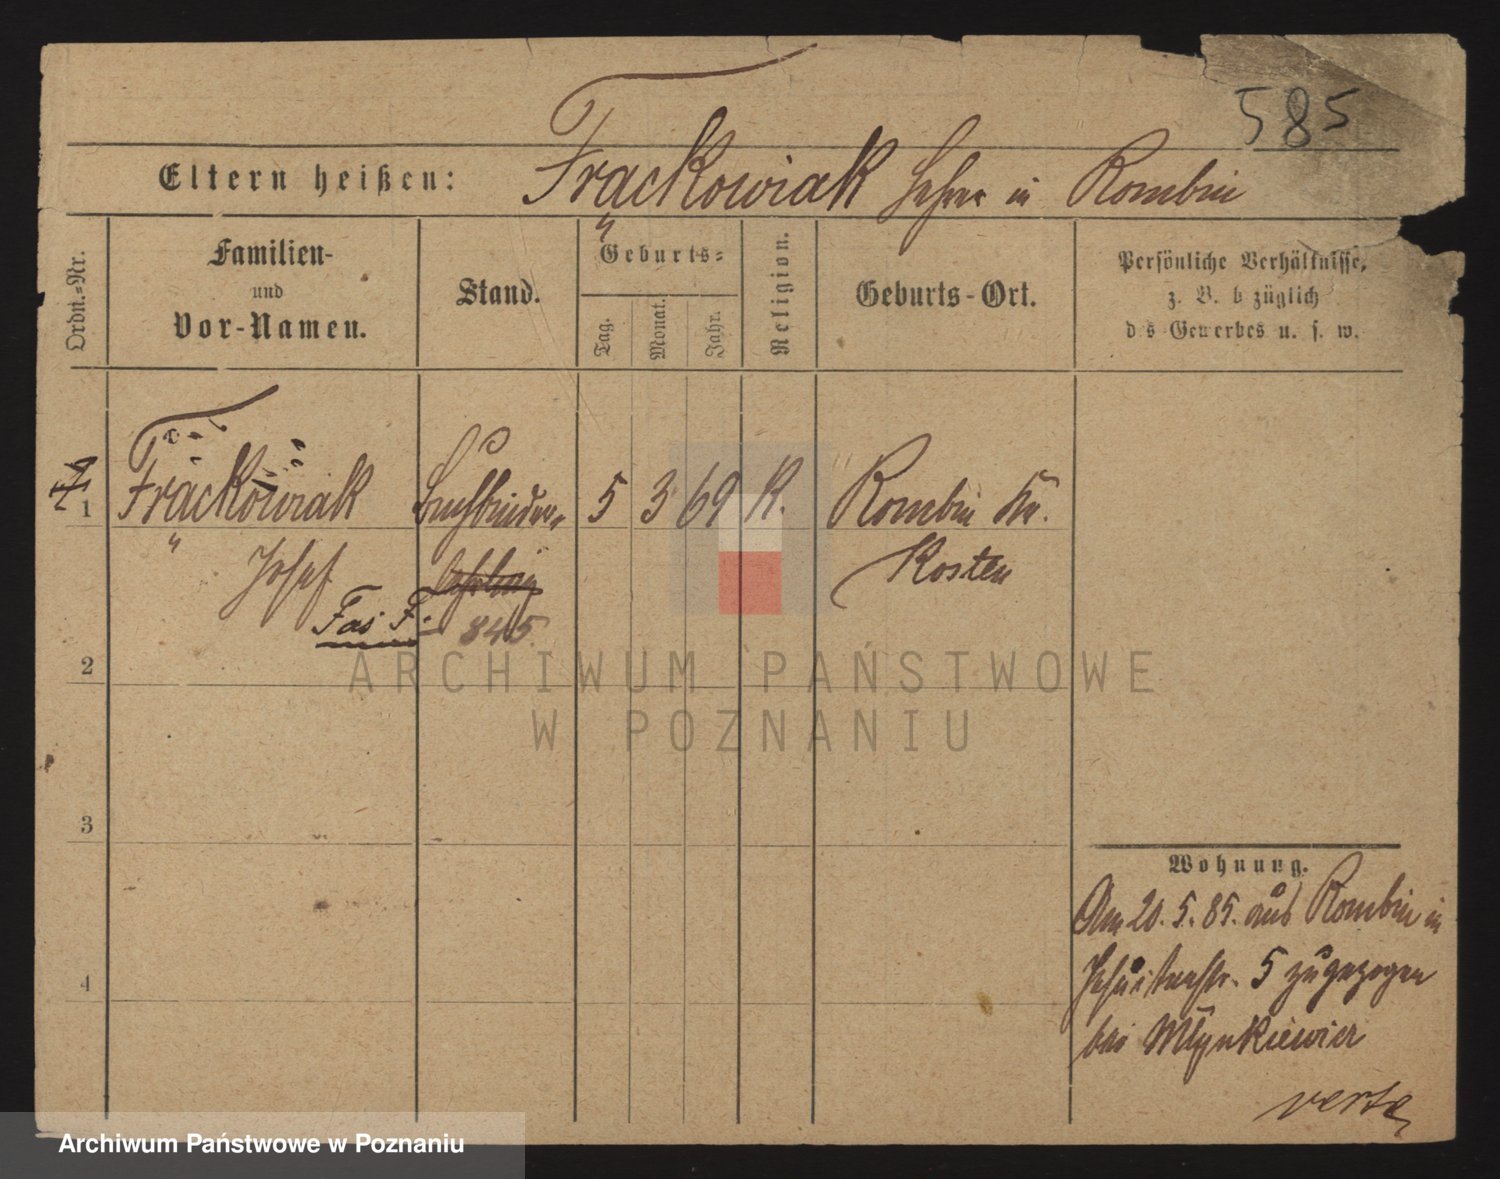 585
Eltern heißen: Frąckowiak Lehrer in Rombin
Ordn.=Nr.
Familien-
und
Vor-Namen.
Stand.
Geburts=
Tag.
Monat.
Jahr.
Religion.
Geburts-Ort.
Persönliche Verhältnisse,
z. B. b züglich
d s Gewerbes u. s. w.
1 Frąckowiak Buchbinder- 5 3 69 K. Rombin Kr.
Josef Lehrling Kosten
845
2
3
4
Wohnung.
Am 20. 5. 85. aus Rombin in
Jesuitenstr. 5 zugezogen
bei Mlynkiewicz
verte
ARCHIWUM PAŃSTWOWE
W POZNANIU
Archiwum Państwowe w Poznaniu